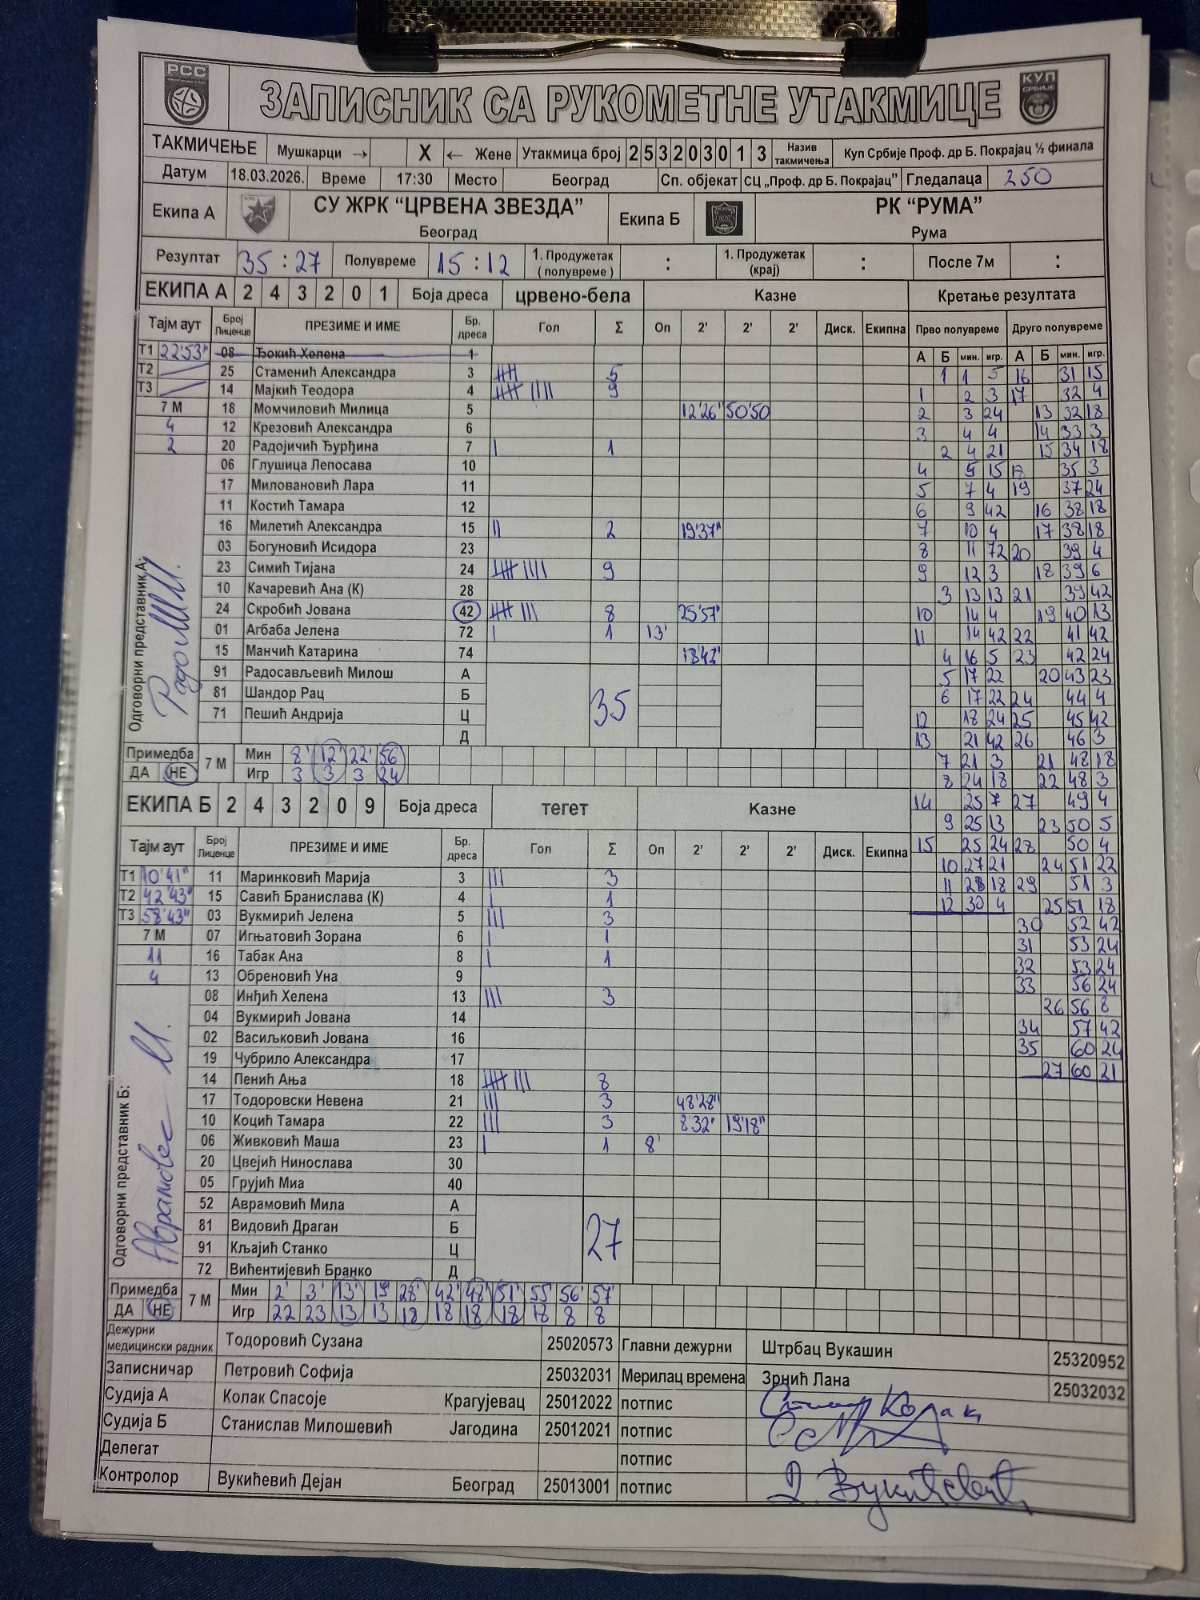 РСС
ЗАПИСНИК СА РУКОМЕТНЕ УТАКМИЦЕ
КУП СРБИЈЕ
ТАКМИЧЕЊЕ Мушкарци → X ← Жене Утакмица број 2 5 3 2 0 3 0 1 3 Назив такмичења Куп Србије Проф. др Б. Покрајац ½ финала
Датум 18.03.2026. Време 17:30 Место Београд Сп. објекат СЦ „Проф. др Б. Покрајац" Гледалаца 250
Екипа А СУ ЖРК "ЦРВЕНА ЗВЕЗДА" Београд Екипа Б РК "РУМА" Рума
Резултат 35 : 27 Полувреме 15 : 12 1. Продужетак (полувреме) : 1. Продужетак (крај) : После 7м :
ЕКИПА А 2 4 3 2 0 1 Боја дреса црвено-бела Казне Кретање резултата
Тајм аут Број Лиценце ПРЕЗИМЕ И ИМЕ Бр. дреса Гол Σ Оп 2' 2' 2' Диск. Екипна Прво полувреме Друго полувреме
А Б мин. игр. А Б мин. игр.
Т1 22'53" 08 Ђокић Хелена 1
Т2 25 Стаменић Александра 3 5
Т3 14 Мајкић Теодора 4 9
7 М 18 Момчиловић Милица 5 12'26" 50'50
4 12 Крезовић Александра 6
2 20 Радојичић Ђурђина 7 1
06 Глушица Лепосава 10
17 Миловановић Лара 11
11 Костић Тамара 12
16 Милетић Александра 15 2 19'37"
03 Богуновић Исидора 23
23 Симић Тијана 24 9
10 Качаревић Ана (К) 28
24 Скробић Јована 42 8 25'57"
01 Агбаба Јелена 72 1 13'
15 Манчић Катарина 74 18'42"
91 Радосављевић Милош А
81 Шандор Рац Б 35
71 Пешић Андрија Ц
Д
Одговорни представник А:
Примедба ДА НЕ 7 М
Мин 8' 12' 22' 56
Игр 3 3 3 24
ЕКИПА Б 2 4 3 2 0 9 Боја дреса тегет Казне
Тајм аут Број Лиценце ПРЕЗИМЕ И ИМЕ Бр. дреса Гол Σ Оп 2' 2' 2' Диск. Екипна
Т1 10'41" 11 Маринковић Марија 3 3
Т2 42'43" 15 Савић Бранислава (К) 4 1
Т3 58'43" 03 Вукмирић Јелена 5 3
7 М 07 Игњатовић Зорана 6 1
11 16 Табак Ана 8 1
4 13 Обреновић Уна 9
08 Инђић Хелена 13 3
04 Вукмирић Јована 14
02 Васиљковић Јована 16
19 Чубрило Александра 17
14 Пенић Ања 18 8
17 Тодоровски Невена 21 3 48'28"
10 Коцић Тамара 22 3 8'32" 19'18"
06 Живковић Маша 23 1 8'
20 Цвејић Нинослава 30
05 Грујић Миа 40
52 Аврамовић Мила А
81 Видовић Драган Б 27
91 Кљајић Станко Ц
72 Вићентијевић Бранко Д
Одговорни представник Б:
Примедба ДА НЕ 7 М
Мин 2' 3' 13' 19 28' 42' 48' 51' 55 56' 57'
Игр 22 23 13 13 18 18 18 18 18 8 8
1 1 5
1 2 3
2 3 24
3 4 4
2 4 21
4 5 15
5 7 4
6 9 42
7 10 4
8 11 72
9 12 3
3 13 13
10 14 4
11 14 42
4 16 5
5 17 22
6 17 22
12 18 24
13 21 42
7 21 3
8 24 18
14 25 7
9 25 13
15 25 24
10 27 21
11 28 18
12 30 4
16 31 15
17 32 4
13 32 18
14 33 3
15 34 18
35 3
19 37 24
16 38 18
17 38 18
20 39 4
18 39 6
21 39 42
19 40 13
22 41 42
23 42 24
20 43 23
24 44 4
25 45 42
26 46 3
21 48 18
22 48 3
27 49 4
23 50 5
28 50 4
24 51 22
29 51 3
25 51 18
30 52 42
31 53 24
32 53 24
33 56 24
26 56 8
34 57 42
35 60 24
27 60 21
Дежурни медицински радник Тодоровић Сузана 25020573 Главни дежурни Штрбац Вукашин 25320952
Записничар Петровић Софија 25032031 Мерилац времена Зрнић Лана 25032032
Судија А Колак Спасоје Крагујевац 25012022 потпис
Судија Б Станислав Милошевић Јагодина 25012021 потпис
Делегат потпис
Контролор Вукићевић Дејан Београд 25013001 потпис